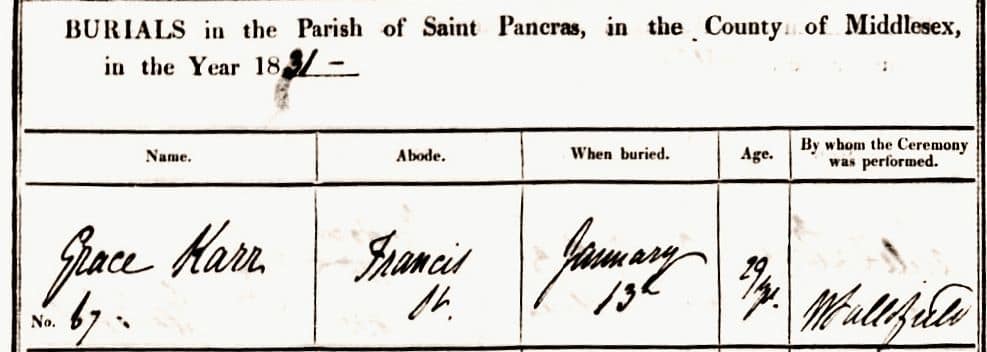 BURIALS in the Parish of Saint Pancras, in the County of Middlesex,
in the Year 1831 –
Name. Abode. When buried. Age. By whom the Ceremony was performed.
Grace Karr
Francis
St.
January
13th
29
No. 67